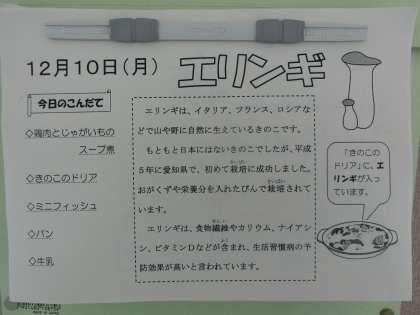 12月10日(月)
エリンギ
今日のこんだて
◇鶏肉とじゃがいもの
スープ煮
◇きのこのドリア
◇ミニフィッシュ
◇パン
◇牛乳
エリンギは、イタリア、フランス、ロシアな
どで山や野に自然に生えているきのこです。
もともと日本にはないきのこでしたが、平成
5年に愛知県で、初めて栽培に成功しました。
おがくずや栄養分を入れたびんで栽培されて
います。
エリンギは、食物繊維やカリウム、ナイアシ
ン、ビタミンDなどが含まれ、生活習慣病の予
防効果が高いと言われています。
「きのこの
ドリア」に、エ
リンギが入っ
ています。